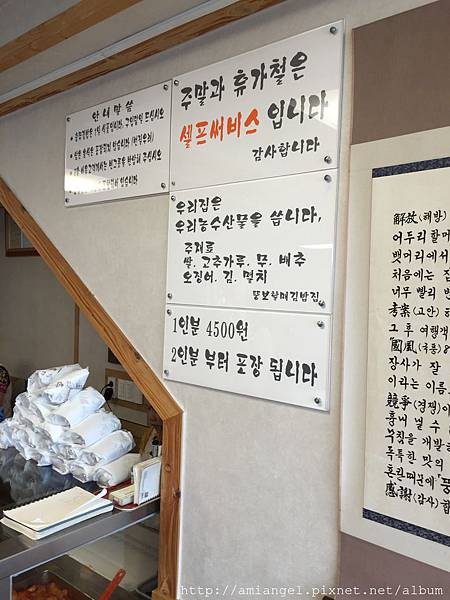 안내말씀
주말과 휴가철은
셀프써비스 입니다
감사합니다
우리집은
우리농수산물을 씁니다.
주재료
쌀. 고추가루. 무. 배추
오징어. 김. 멸치
뚱보할매김밥집
1인분 4500원
2인분 부터 포장 됩니다
解放(해방)
어두리할머
뱃머리에서
처음에는 김
너무 빨리 변
考案(고안)
그 후 여행객
國風(국풍)8
장사가 잘
이라는 이름
競爭(경쟁)이
흉내 낼 수
독특한 맛의
혼란때문에 「뚱
感謝(감사)합
http://amiangel.pixnet.net/album